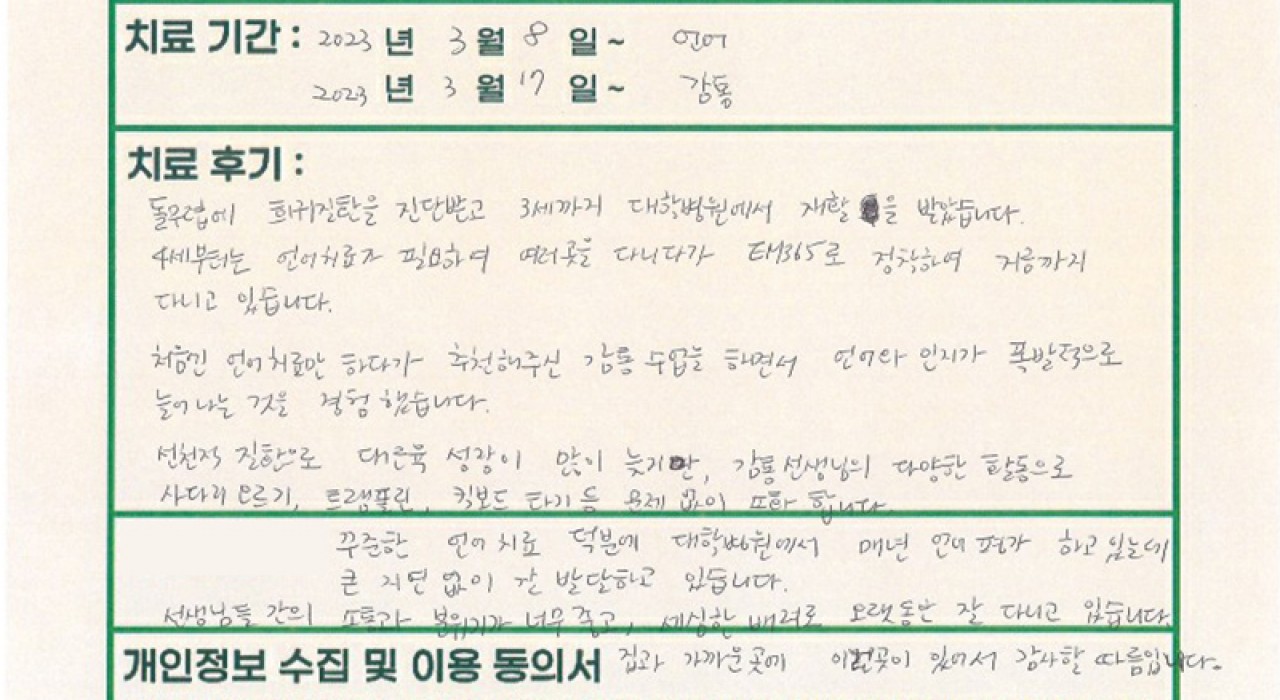 치료 기간 : 2023 년 3 월 8 일 ~ 언어
2023 년 3 월 17 일 ~ 감통
치료 후기 :
돌무렵에 희귀질환을 진단받고 3세까지 대학병원에서 재활을 받았습니다.
4세부터는 언어치료가 필요하여 여러곳을 다니다가 EM365로 정착하여 지금까지
다니고 있습니다.
처음엔 언어치료만 하다가 추천해주신 감통수업을 하면서 언어와 인지가 폭발적으로
늘어나는 것을 경험했습니다.
선천적 질환으로 대근육 성장이 많이 늦지만, 감통선생님의 다양한 활동으로
사다리 오르기, 트램폴린, 킥보드 타기 등 문제 없이 합니다.
꾸준한 언어치료 덕분에 대학병원에서 매년 언어 평가 하고있는데
큰 지연 없이 잘 발달하고 있습니다.
선생님들 간의 소통과 분위기가 너무 좋고, 세심한 배려로 오랫동안 잘 다니고 있습니다.
개인정보 수집 및 이용 동의서 집과 가까운곳에 이런곳이 있어서 감사할 따름입니다.